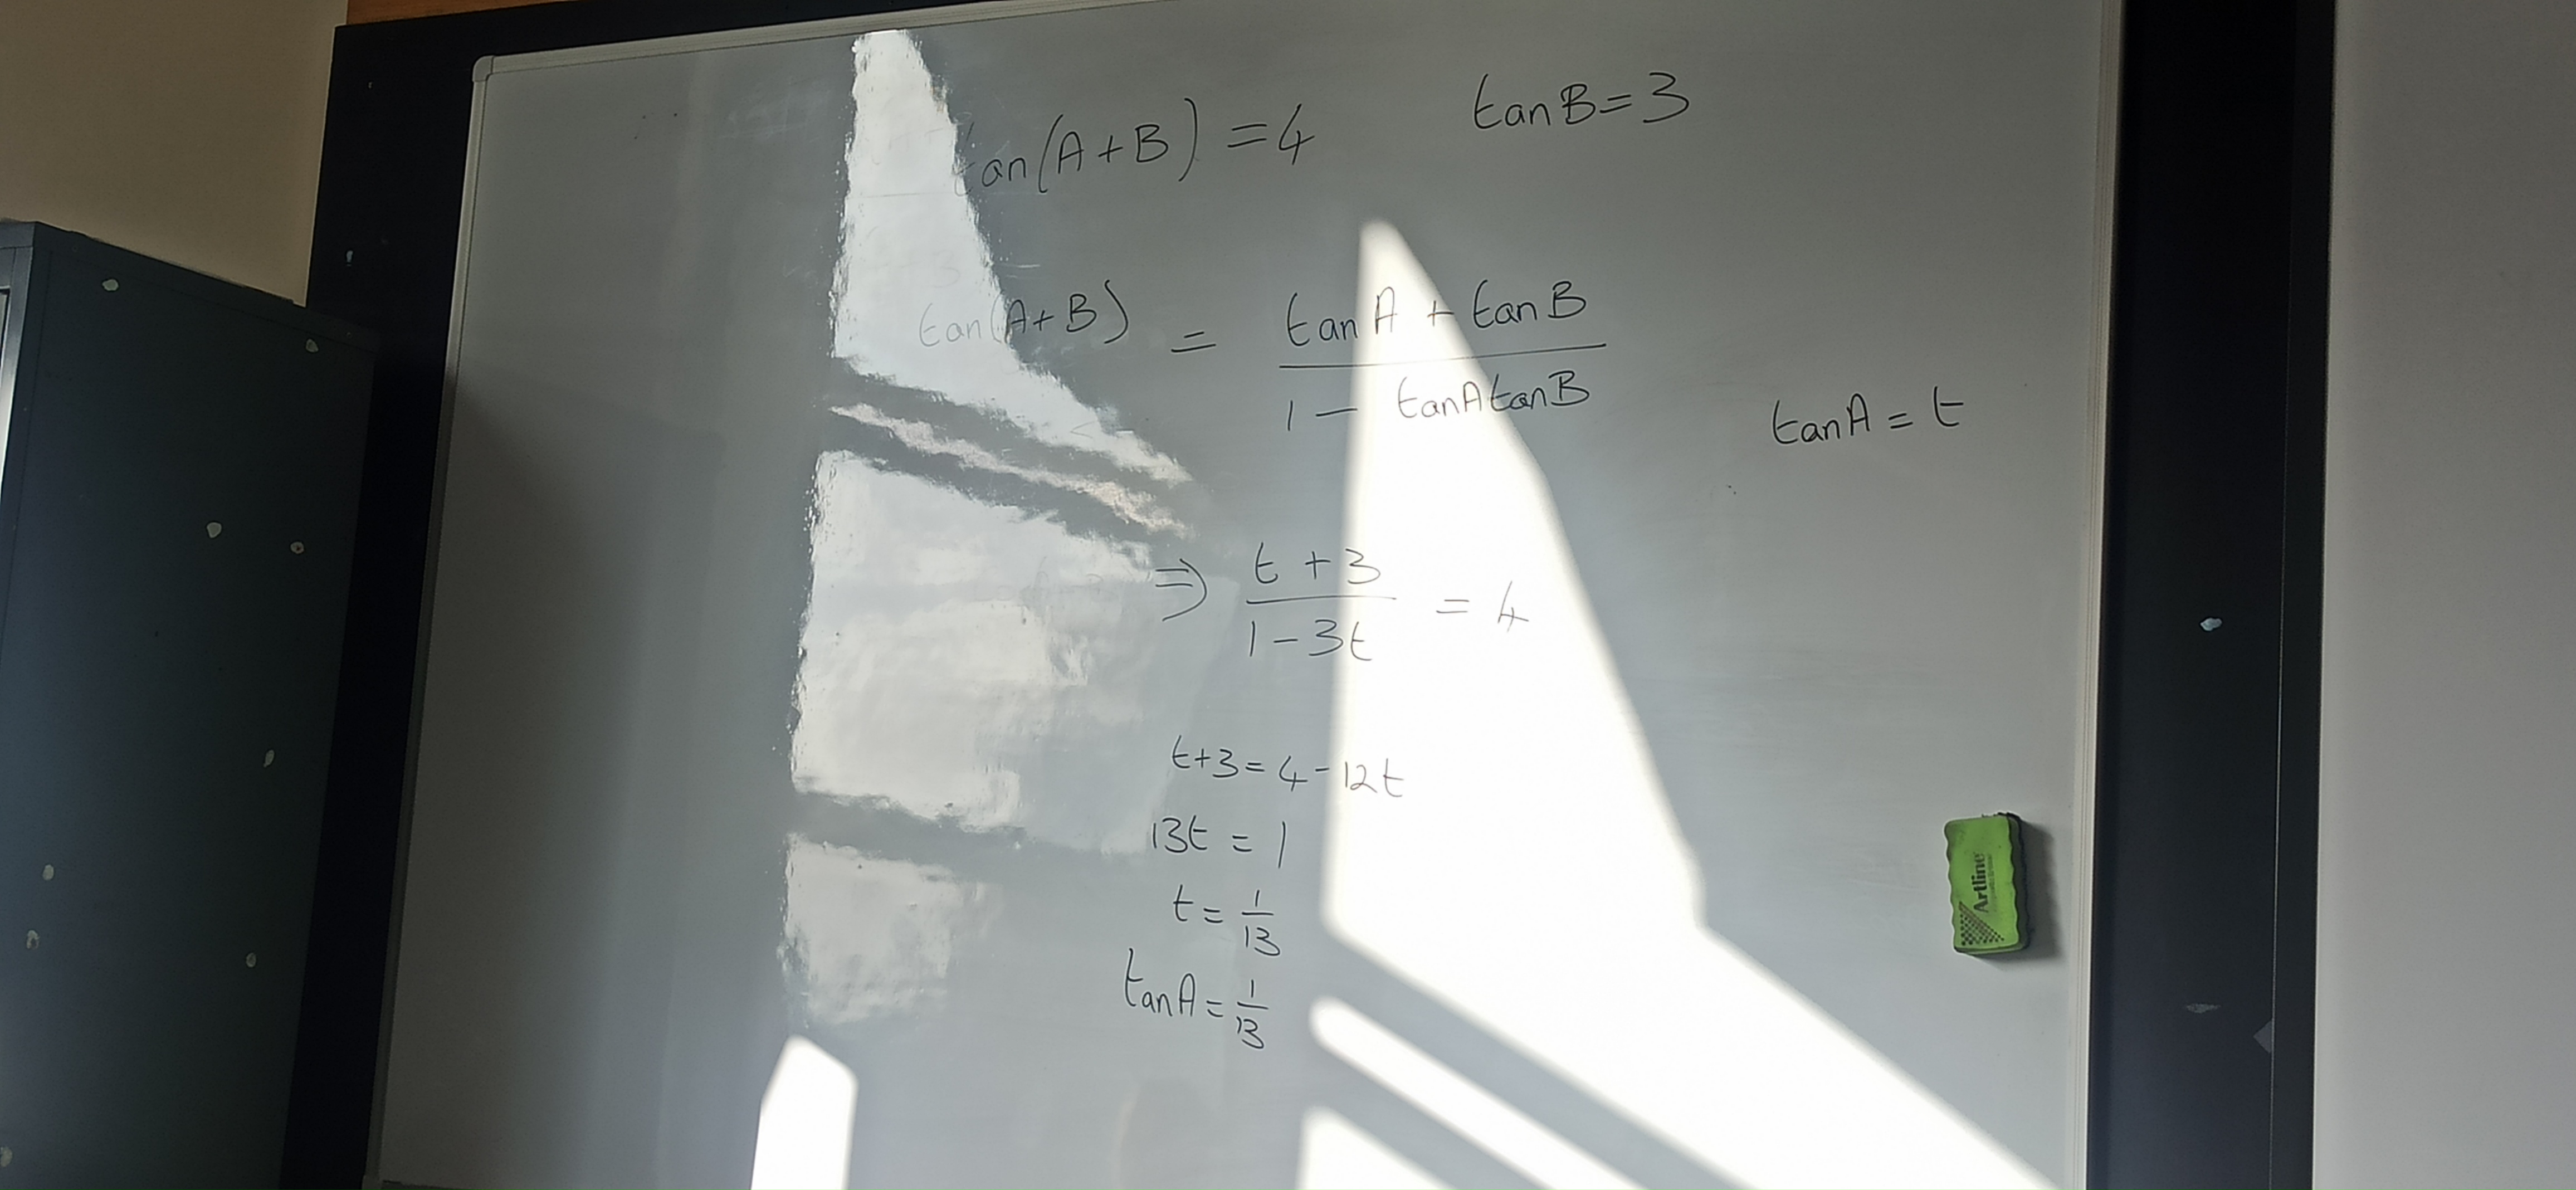 tan(A+B) = 4 tanB = 3
tan(A+B) = (tanA + tanB)/(1 - tanAtanB)
tanA = t
⇒ (t+3)/(1-3t) = 4
t+3 = 4-12t
13t = 1
t = 1/13
tanA = 1/13
Artline